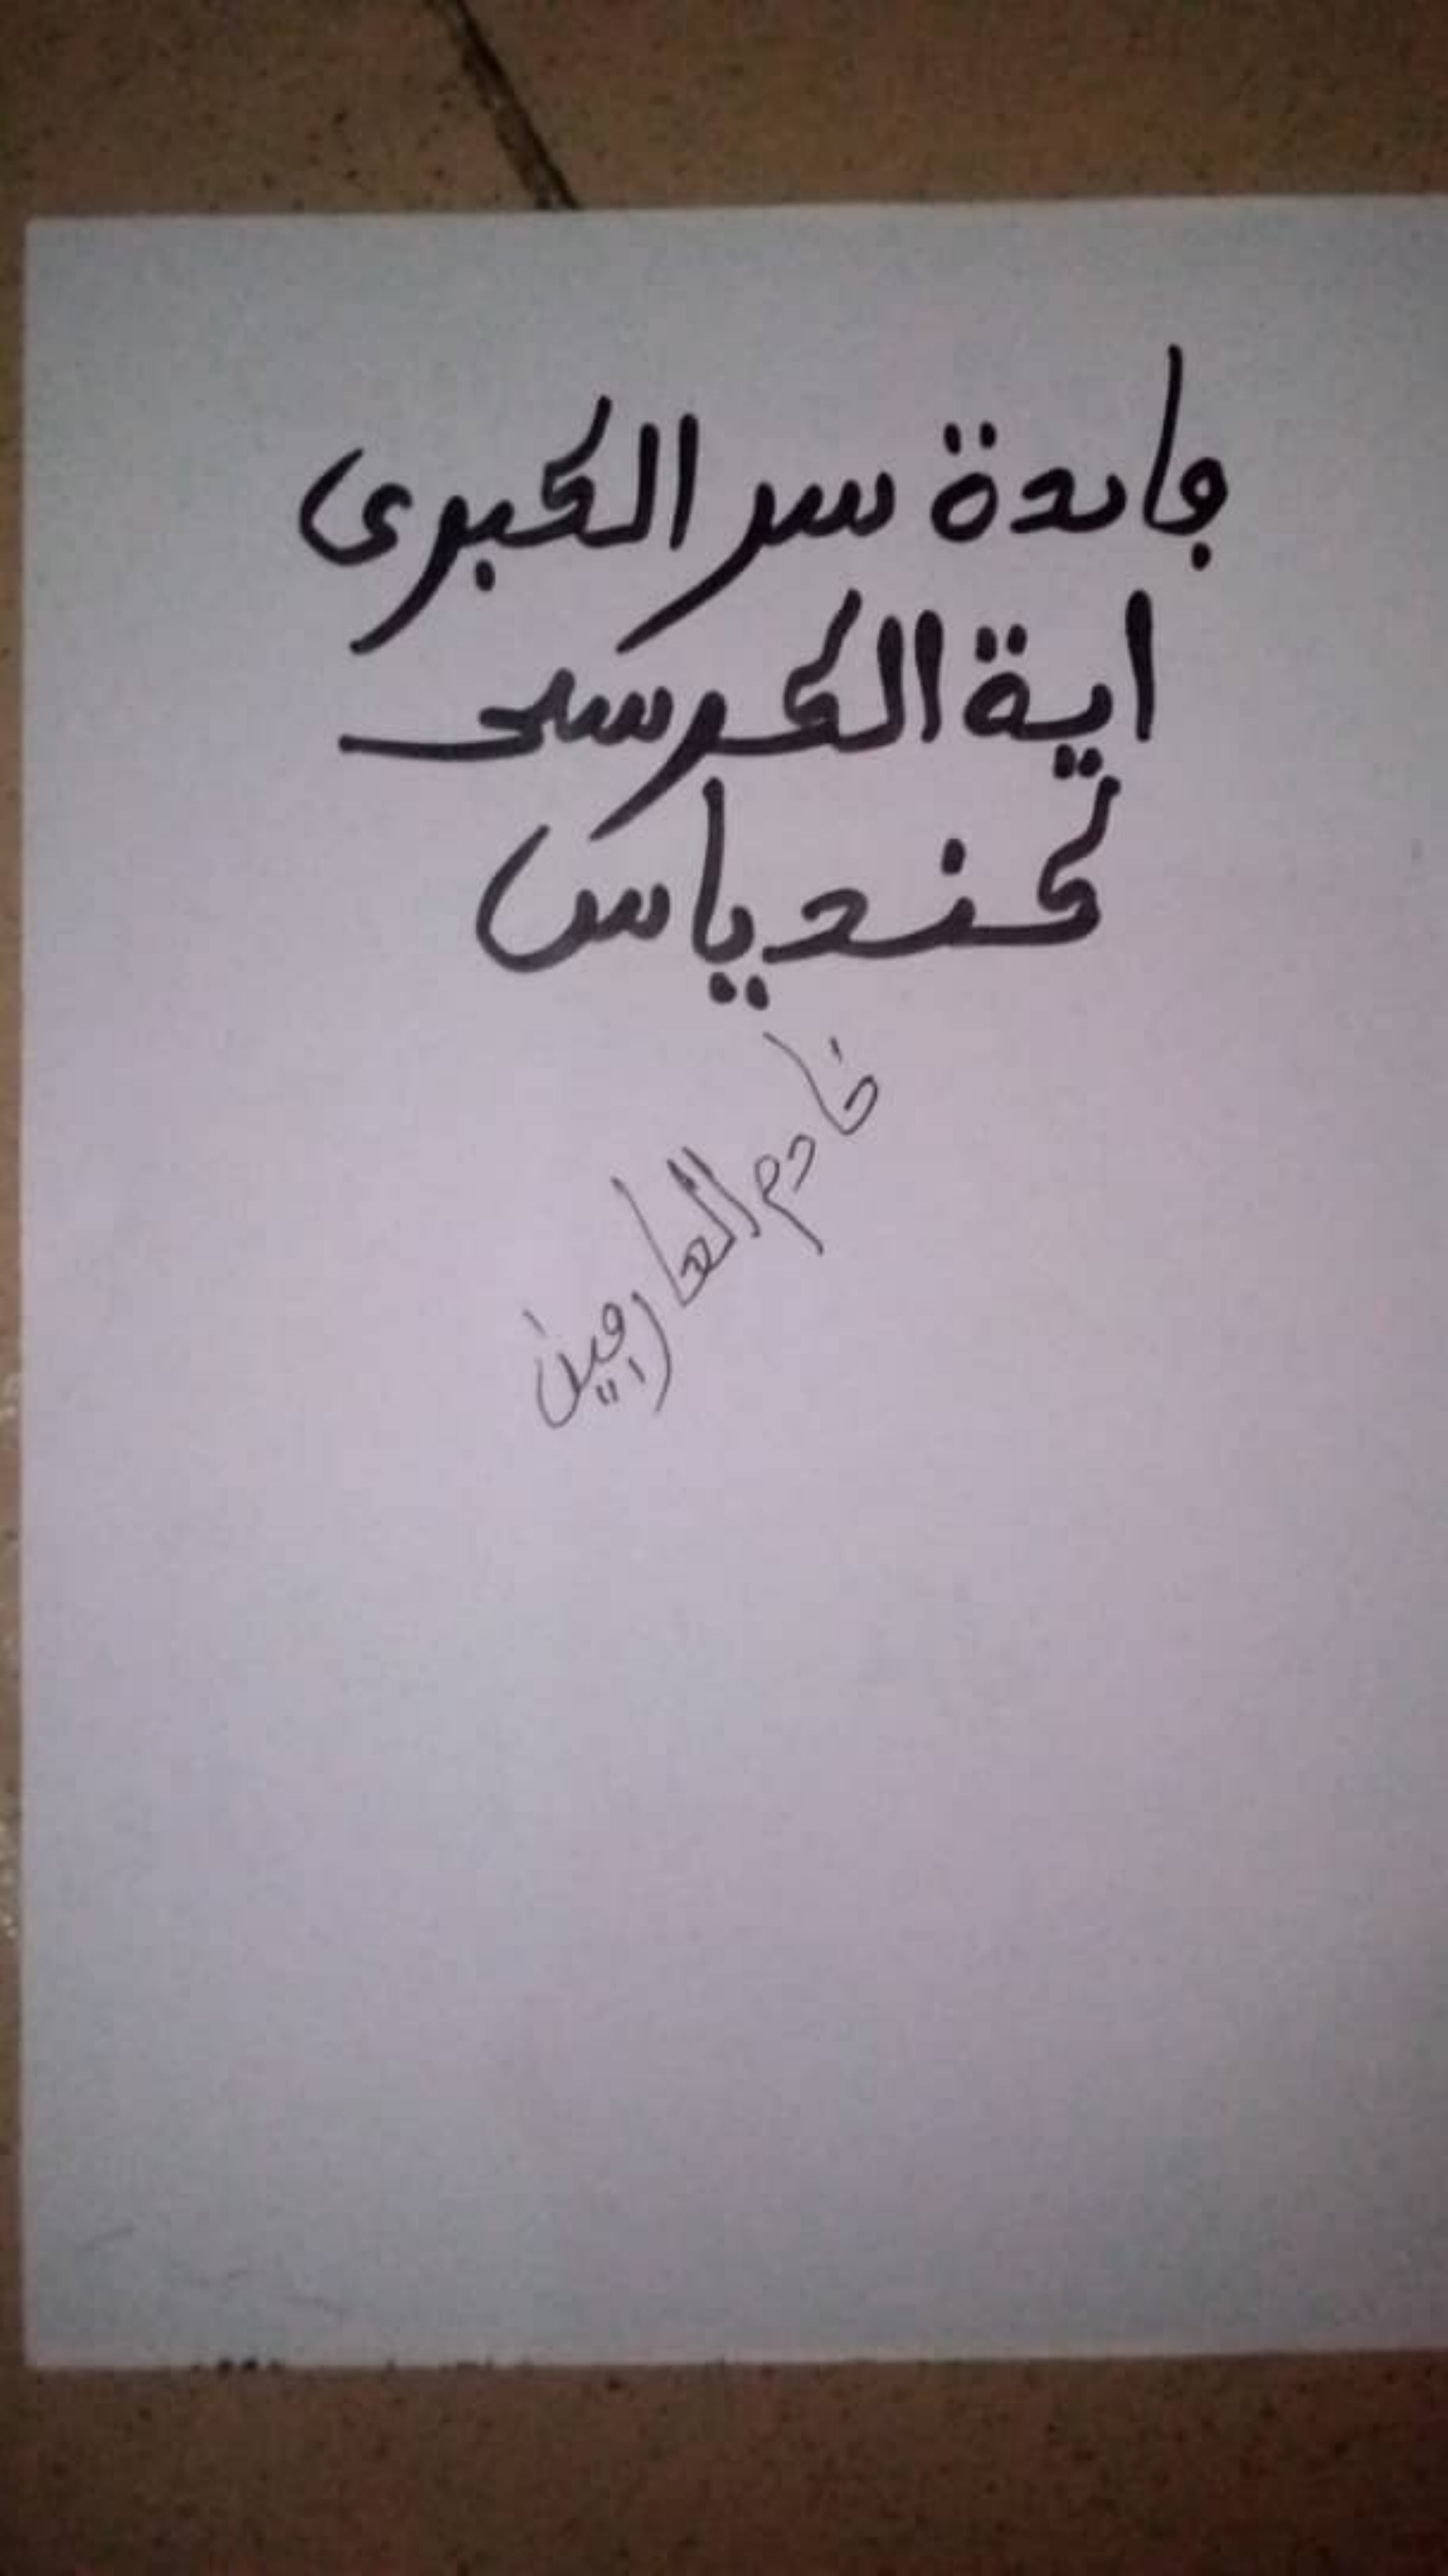 فايدة سر الكبرى
اية الكرسى
كندياس
خادم العارفين